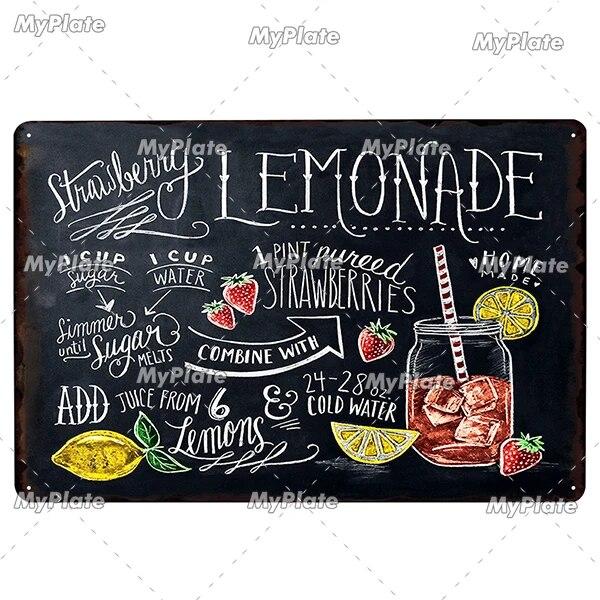 MyPlate MyPlate
Strawberry LEMONADE
MyPlate MyPlate
CUP Sugar 1 CUP WATER
1 PINT pureed STRAWBERRIES
HOME MADE
MyPlate MyPlate MyPlate
Simmer until Sugar MELTS
COMBINE WITH
MyPlate MyPlate
ADD JUICE FROM 6 Lemons & 24-28 oz. COLD WATER
MyPlate MyPlate MyPlate
MyPlate MyPlate